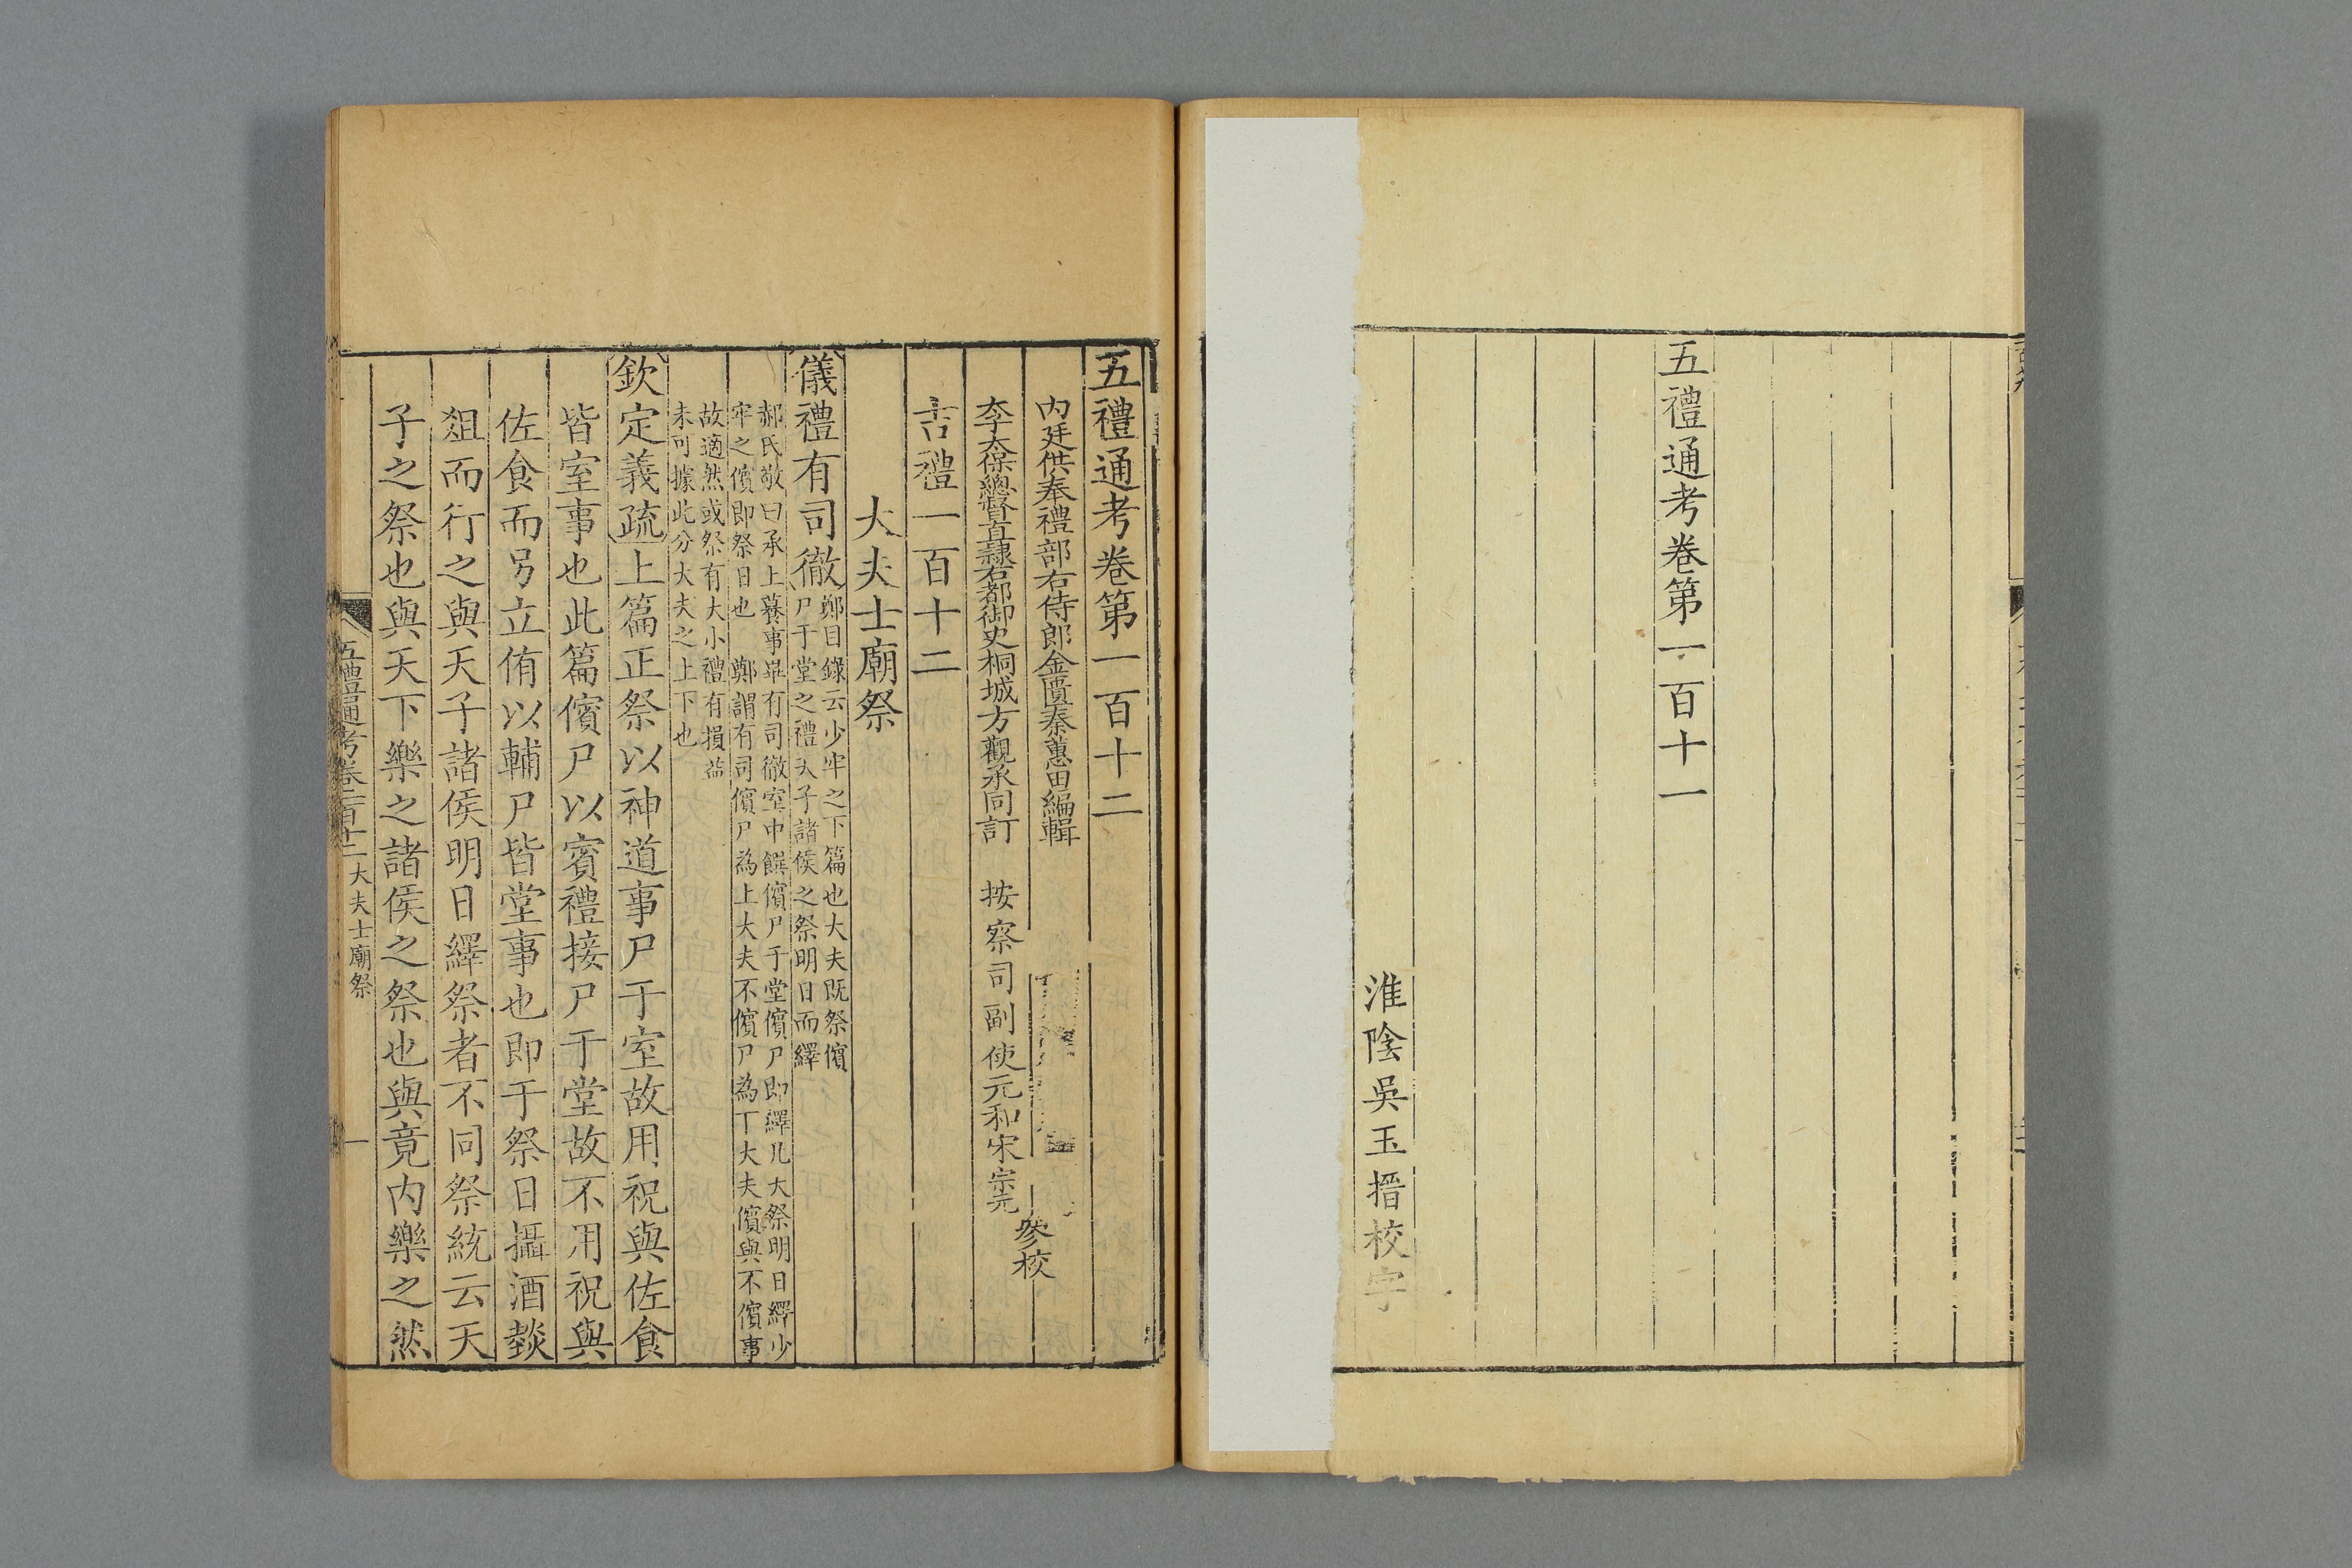 五禮通考卷第一百十一
淮陰吳玉搢校字
五禮通考卷第一百十二
內廷供奉禮部右侍郎金匱秦蕙田編輯
太子太保總督直隸右都御史桐城方觀承同訂
按察司副使元和宋宗元
參校
吉禮一百十二
大夫士廟祭
儀禮有司徹
鄭目錄云少牢之下篇也大夫既祭儐
尸于堂之禮天子諸侯之祭明日而繹
郝氏敬曰承上養事畢有司徹室中饌儐尸于堂儐尸即繹凡大祭明日繹少
牢之儐即祭日也 鄭謂有司儐尸為上大夫不儐尸為下大夫儐與不儐事
故適然或祭有大小禮有損益
未可據此分大夫之上下也
欽定義疏上篇正祭以神道事尸于室故用祝與佐食
皆室事也此篇儐尸以賓禮接尸于堂故不用祝與
佐食而另立侑以輔尸皆堂事也即于祭日攝酒燅
俎而行之與天子諸侯明日繹祭者不同祭統云天
子之祭也與天下樂之諸侯之祭也與竟內樂之然
五禮通考卷一百十二 大夫士廟祭
一